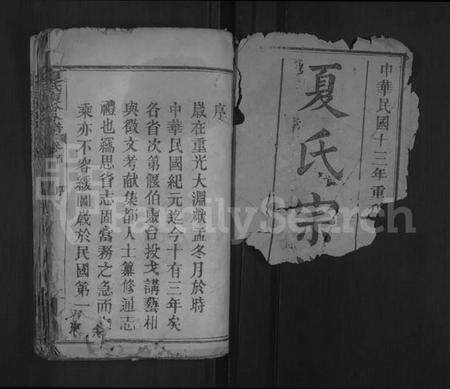 中華民國十三年重
夏氏宗
序
歲在重光大淵獻孟冬月於時
中華民國紀元迄今十有三年矣
各省次第偃伯靈台投戈講藝相
與徵文考献集都人士纂修通志
禮也竊思省志固當務之急而
乘亦不容緩圖啟於民國第一
FamilySearch